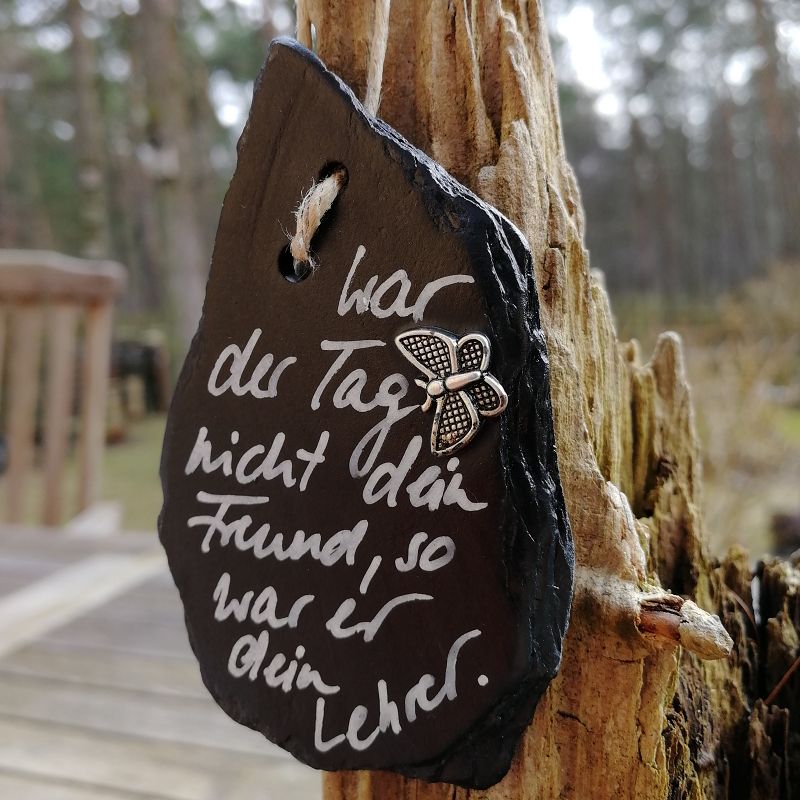 war
der Tag
nicht dein
Freund, so
war er
dein
Lehrer.